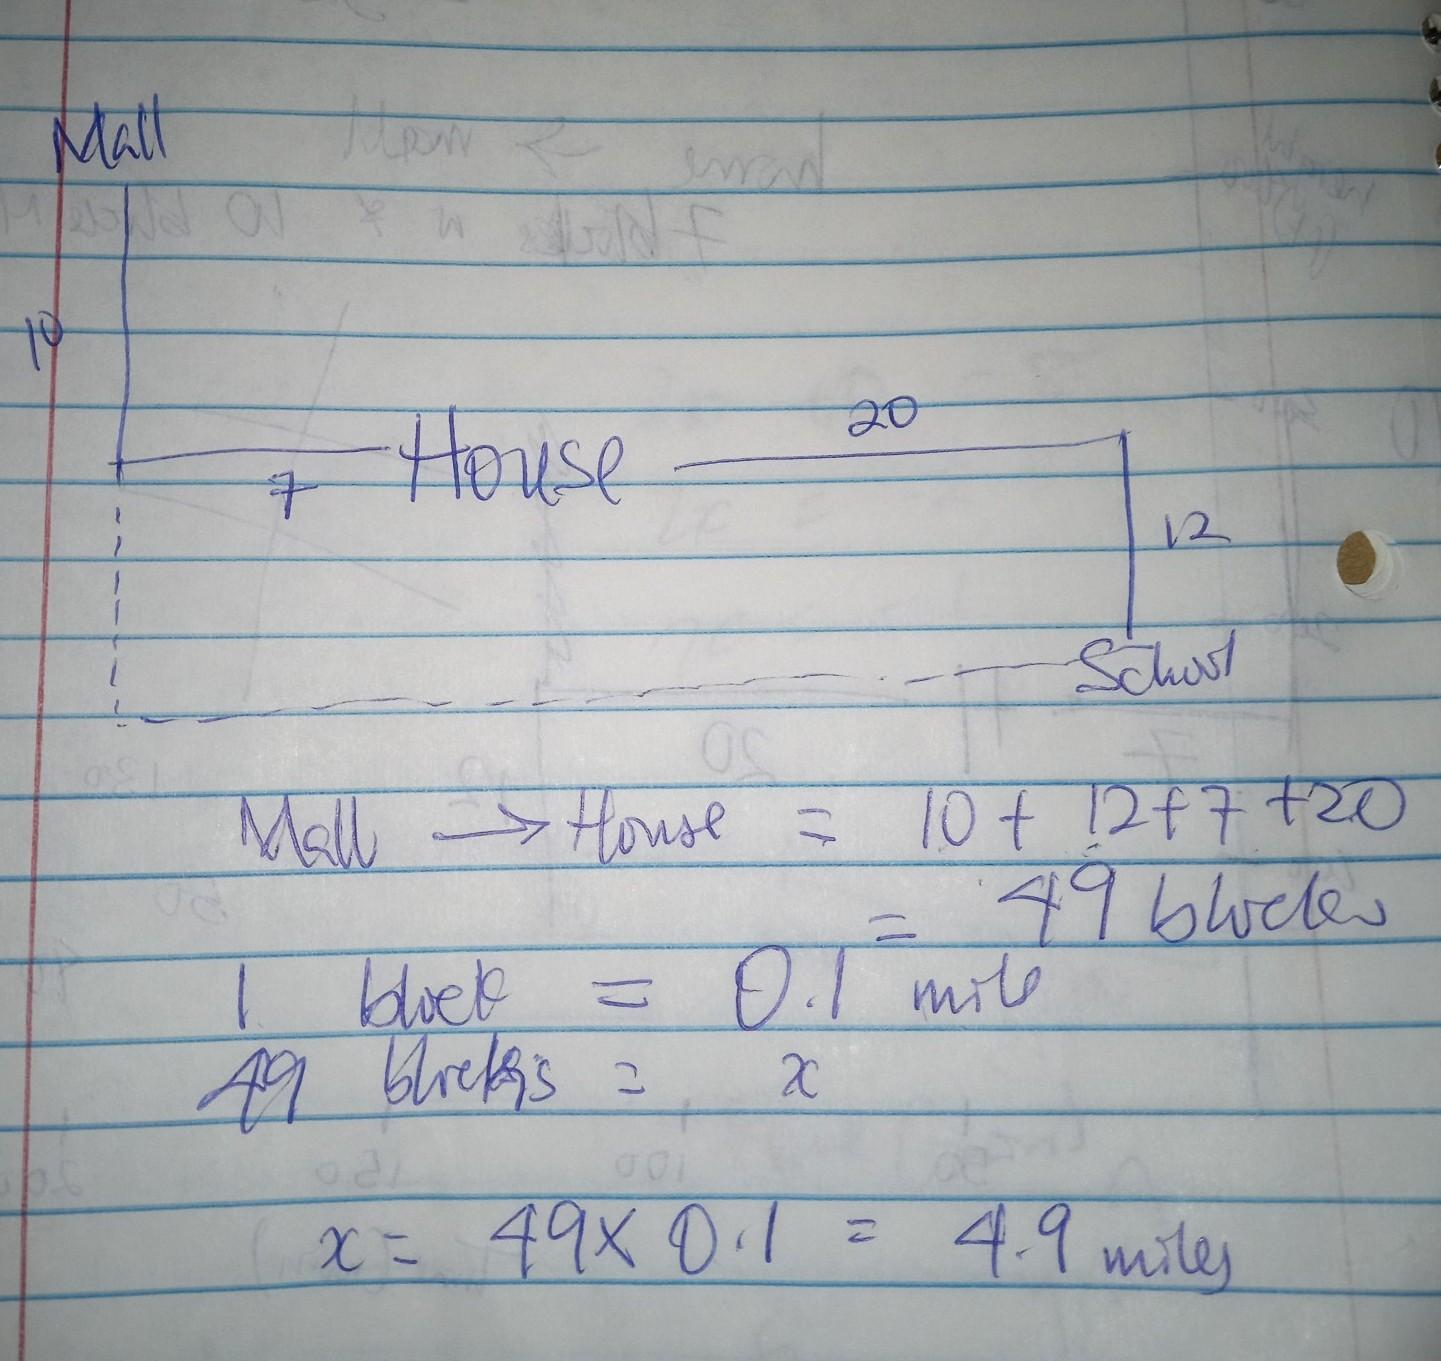 Mall
10
20
House
7
12
School
Mall → House = 10 + 12 + 7 + 20
= 49 blocks
1 block = 0.1 mile
49 blocks = x
x = 49 x 0.1 = 4.9 miles